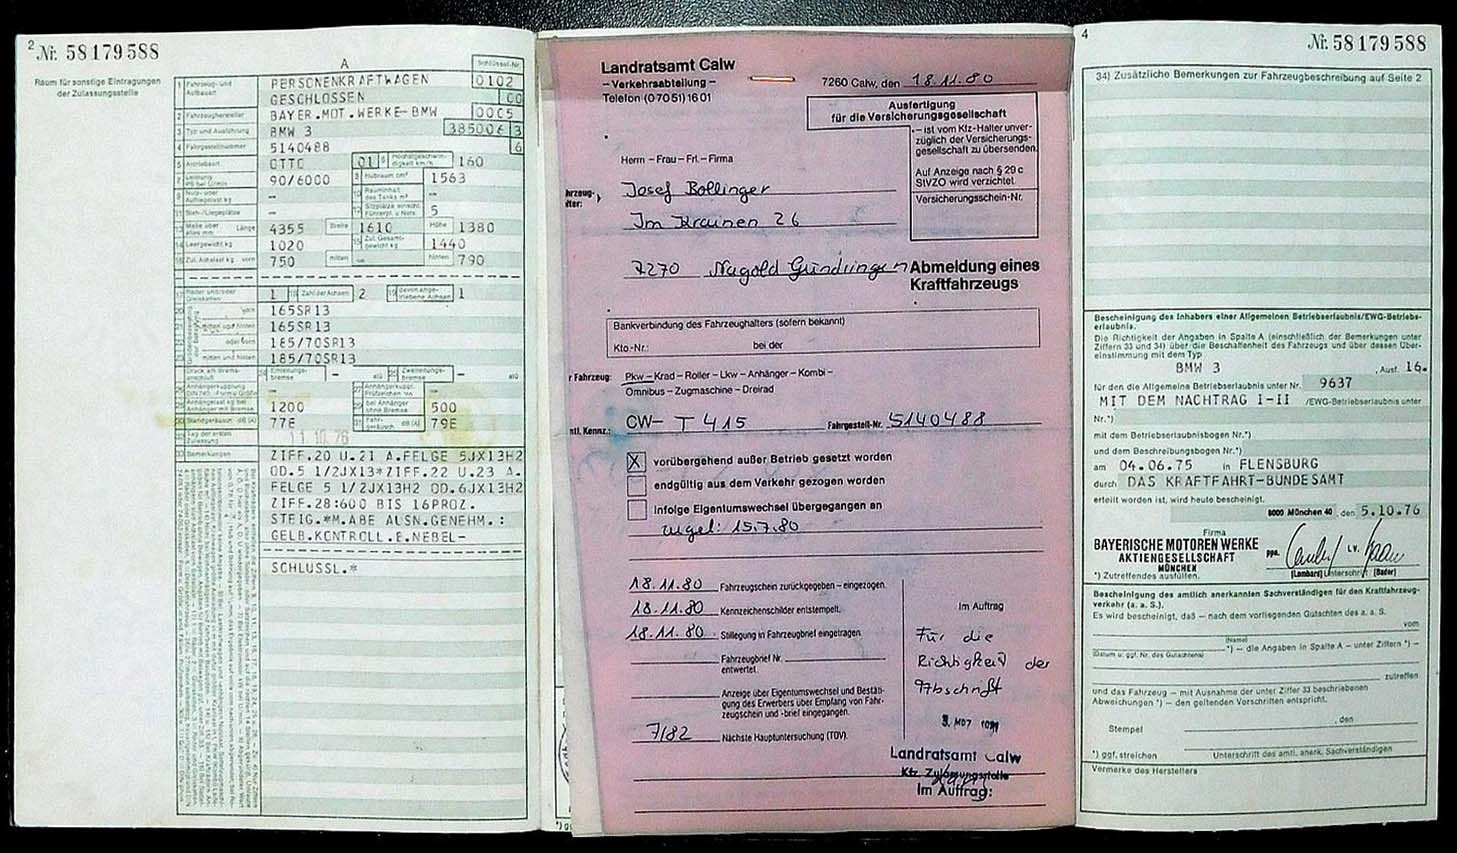 2 Nr. 58179588
Raum für sonstige Eintragungen
der Zulassungsstelle
A
Schlüssel-Nr.
1 Fahrzeug- und Aufbauart PERSONENKRAFTWAGEN 0102
GESCHLOSSEN 00
2 Fahrzeughersteller BAYER.MOT.WERKE-BMW 0005
3 Typ und Ausführung BMW 3 385006 3
4 Fahrgestellnummer 5140488 6
5 Antriebsart OTTO 01 6 Höchstgeschwindigkeit km/h 160
7 Leistung PS bei U/min 90/6000 8 Hubraum cm³ 1563
9 Nutz- oder Aufliegelast kg – 10 Rauminhalt des Tanks m³ –
11 Steh-/Liegeplätze – 12 Sitzplätze einschl. Führerpl. u. Nots. 5
13 Maße über alles mm Länge 4355 Breite 1610 Höhe 1380
14 Leergewicht kg 1020 15 Zul. Gesamtgewicht kg 1440
16 Zul. Achslast kg vorn 750 mitten – hinten 790
17 Räder und/oder Gleisketten 1 18 Zahl der Achsen 2 19 davon angetriebene Achsen 1
20 vorn 165SR13
21 mitten und hinten 165SR13
22 oder vorn 185/70SR13
23 mitten und hinten 185/70SR13
Druck am Bremsanschluß 24 Einleitungsbremse – atü 25 Zweileitungsbremse – atü
26 Anhängerkupplung DIN 740.. -Form u. Größe – 27 Anhängerkuppl. Prüfzeichen –
28 Anhängelast kg bei Anhänger mit Bremse 1200 29 bei Anhänger ohne Bremse 500
30 Standgeräusch dB (A) 77E 31 Fahrgeräusch dB (A) 79E
32 Tag der ersten Zulassung 11.10.76
33 Bemerkungen ZIFF.20 U.21 A.FELGE 5JX13H2
OD.5 1/2JX13*ZIFF.22 U.23 A.
FELGE 5 1/2JX13H2 OD.6JX13H2
ZIFF.28:600 BIS 16PROZ.
STEIG.*M.ABE AUSN.GENEHM.:
GELB.KONTROLL.E.NEBEL-
SCHLUSSL.*
Landratsamt Calw
– Verkehrsabteilung –
Telefon (07051) 1601
7260 Calw, den 18.11.80
Ausfertigung
für die Versicherungsgesellschaft
– ist vom Kfz-Halter unver-
züglich der Versicherungs-
gesellschaft zu übersenden.
Auf Anzeige nach § 29 c
StVZO wird verzichtet.
Versicherungsschein-Nr.
Herrn – Frau – Frl. – Firma
hrzeug-
lter:
Josef Bollinger
Im Krainen 26
7270 Nagold Gündringen
Abmeldung eines
Kraftfahrzeugs
Bankverbindung des Fahrzeughalters (sofern bekannt)
Kto.-Nr.: bei der
r Fahrzeug: Pkw – Krad – Roller – Lkw – Anhänger – Kombi –
Omnibus – Zugmaschine – Dreirad
ntl. Kennz.: CW– T 415 Fahrgestell-Nr. 5140488
X vorübergehend außer Betrieb gesetzt worden
endgültig aus dem Verkehr gezogen worden
infolge Eigentumswechsel übergegangen an
zugel: 15.7.80
18.11.80 Fahrzeugschein zurückgegeben – eingezogen.
18.11.80 Kennzeichenschilder entstempelt.
18.11.80 Stillegung in Fahrzeugbrief eingetragen.
Fahrzeugbrief Nr.
entwertet.
Anzeige über Eigentumswechsel und Bestäti-
gung des Erwerbers über Empfang von Fahr-
zeugschein und -brief eingegangen.
7/82 Nächste Hauptuntersuchung (TÜV).
Im Auftrag
Für die
Richtigkeit der
Abschrift
Landratsamt Calw
Kfz. Zulassungsstelle
Im Auftrag:
4
Nr. 58179588
34) Zusätzliche Bemerkungen zur Fahrzeugbeschreibung auf Seite 2
Bescheinigung des Inhabers einer Allgemeinen Betriebserlaubnis/EWG-Betriebs-
erlaubnis.
Die Richtigkeit der Angaben in Spalte A (einschließlich der Bemerkungen unter
Ziffern 33 und 34) über die Beschaffenheit des Fahrzeugs und über dessen Über-
einstimmung mit dem Typ
BMW 3 , Ausf. 16.
für den die Allgemeine Betriebserlaubnis unter Nr. 9637
MIT DEM NACHTRAG I-II /EWG-Betriebserlaubnis unter
Nr.*)
mit dem Betriebserlaubnisbogen Nr.*)
und dem Beschreibungsbogen Nr.*)
am 04.06.75 in FLENSBURG
durch DAS KRAFTFAHRT-BUNDESAMT
erteilt worden ist, wird heute bescheinigt.
8000 München 40 , den 5.10.76
Firma
BAYERISCHE MOTOREN WERKE
AKTIENGESELLSCHAFT
MÜNCHEN
ppa. i.V.
*) Zutreffendes ausfüllen.
(Lombard) Unterschrift (Bader)
Bescheinigung des amtlich anerkannten Sachverständigen für den Kraftfahrzeug-
verkehr (a. a. S.).
Es wird bescheinigt, daß – nach dem vorliegenden Gutachten des a. a. S.
vom
(Name)
*) – die Angaben in Spalte A – unter Ziffern *) –
(Datum u. ggf. Nr. des Gutachtens)
zutreffen
und das Fahrzeug – mit Ausnahme der unter Ziffer 33 beschriebenen
Abweichungen *) – den geltenden Vorschriften entspricht.
, den
Stempel
*) ggf. streichen Unterschrift des amtl. anerk. Sachverständigen
Vermerke des Herstellers